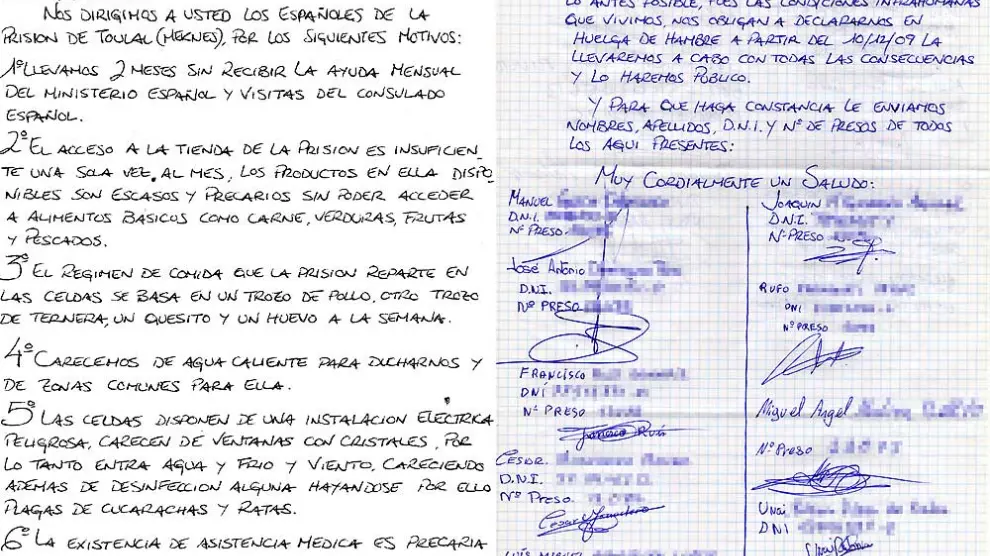 NOS DIRIGIMOS A USTED LOS ESPAÑOLES DE LA
PRISION DE TOULAL (MEKNES), POR LOS SIGUIENTES MOTIVOS:
1º LLEVAMOS 2 MESES SIN RECIBIR LA AYUDA MENSUAL
DEL MINISTERIO ESPAÑOL Y VISITAS DEL CONSULADO
ESPAÑOL.
2º EL ACCESO A LA TIENDA DE LA PRISION ES INSUFICIEN_
TE UNA SOLA VEZ. AL MES, LOS PRODUCTOS EN ELLA DISPO-
NIBLES SON ESCASOS Y PRECARIOS SIN PODER ACCEDER
A ALIMENTOS BASICOS COMO CARNE, VERDURAS, FRUTAS
Y PESCADOS.
3º EL REGIMEN DE COMIDA QUE LA PRISION REPARTE EN
LAS CELDAS SE BASA EN UN TROZO DE POLLO, OTRO TROZO
DE TERNERA, UN QUESITO Y UN HUEVO A LA SEMANA.
4º CARECEMOS DE AGUA CALIENTE PARA DUCHARNOS Y
DE ZONAS COMUNES PARA ELLA.
5º LAS CELDAS DISPONEN DE UNA INSTALACION ELÉCTRICA
PELIGROSA, CARECEN DE VENTANAS CON CRISTALES, POR
LO TANTO ENTRA AGUA Y FRIO Y VIENTO, CARECIENDO
ADEMAS DE DESINFECCION ALGUNA HAYANDOSE POR ELLO
PLAGAS DE CUCARACHAS Y RATAS.
6º LA EXISTENCIA DE ASISTENCIA MEDICA ES PRECARIA
LO ANTES POSIBLE, PUES LAS CONDICIONES INFRAHUMANAS
QUE VIVIMOS, NOS OBLIGAN A DECLARARNOS EN
HUELGA DE HAMBRE A PARTIR DEL 10/12/09 LA
LLEVAREMOS A CABO CON TODAS LAS CONSECUENCIAS
Y LO HAREMOS PUBLICO.
Y PARA QUE HAGA CONSTANCIA LE ENVIAMOS
NOMBRES, APELLIDOS, D.N.I. Y Nº DE PRESOS DE TODOS
LOS AQUI PRESENTES:
MUY CORDIALMENTE UN SALUDO:
MANUEL
D.N.I.
Nº PRESO
José Antonio
D.N.I.
Nº PRESO
FRANCISCO
DNÍ
Nº PRESO
Francisco Ruiz
CESAR.
D.N.I.
Nº Preso.
LUÍS MIGUEL
JOAQUIN
D.N.I.
Nº PRESO
RUFO
DNI
Nº PRESO
Miguel Angel
Nº Preso
Unai
DNI